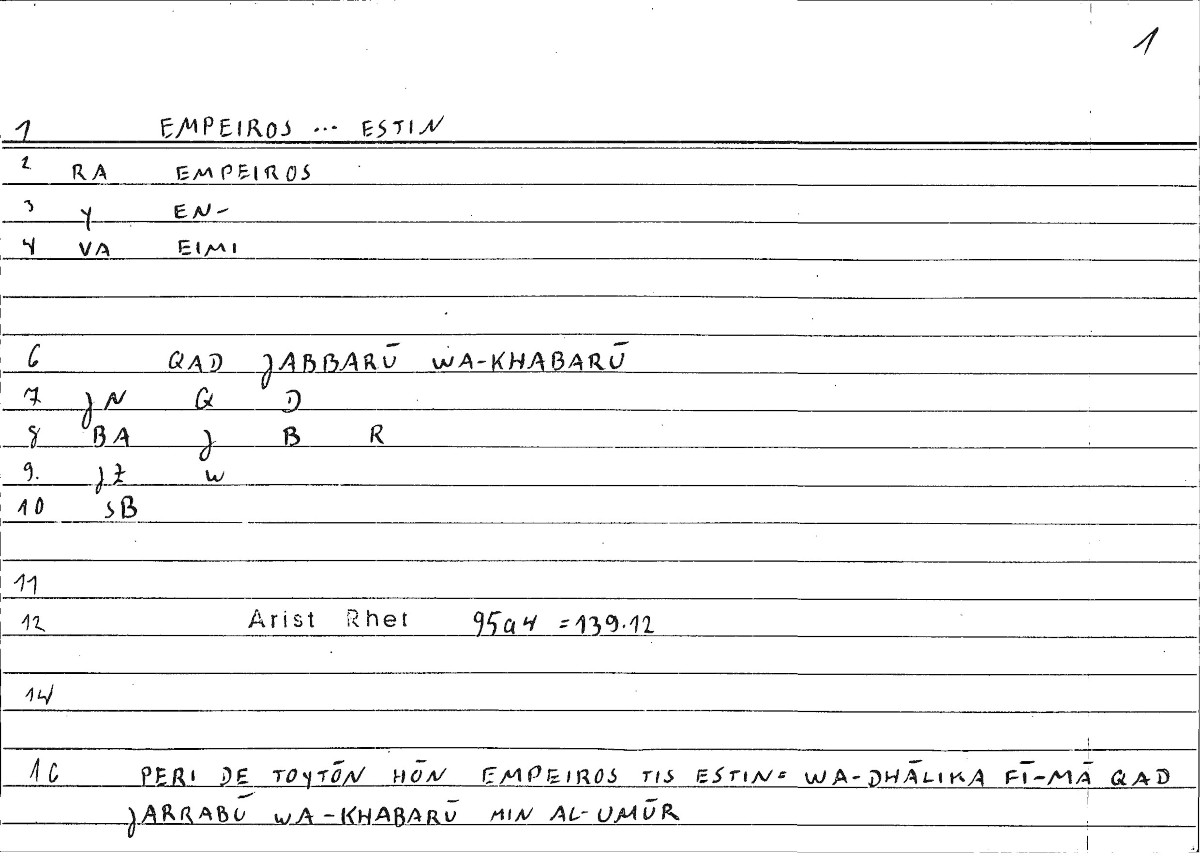 1
1 EMPEIROS ... ESTIN
2 RA EMPEIROS
3 Y EN-
4 VA EIMI
6 QAD JABBARŪ WA-KHABARŪ
7 JN Q D
8 BA J B R
9. JZ W
10 SB
11
12 Arist Rhet 95a4 =139.12
14
16 PERI DE TOYTŌN HŌN EMPEIROS TIS ESTIN= WA-DHĀLIKA FĪ-MĀ QAD
JARRABŪ WA-KHABARŪ MIN AL-UMŪR